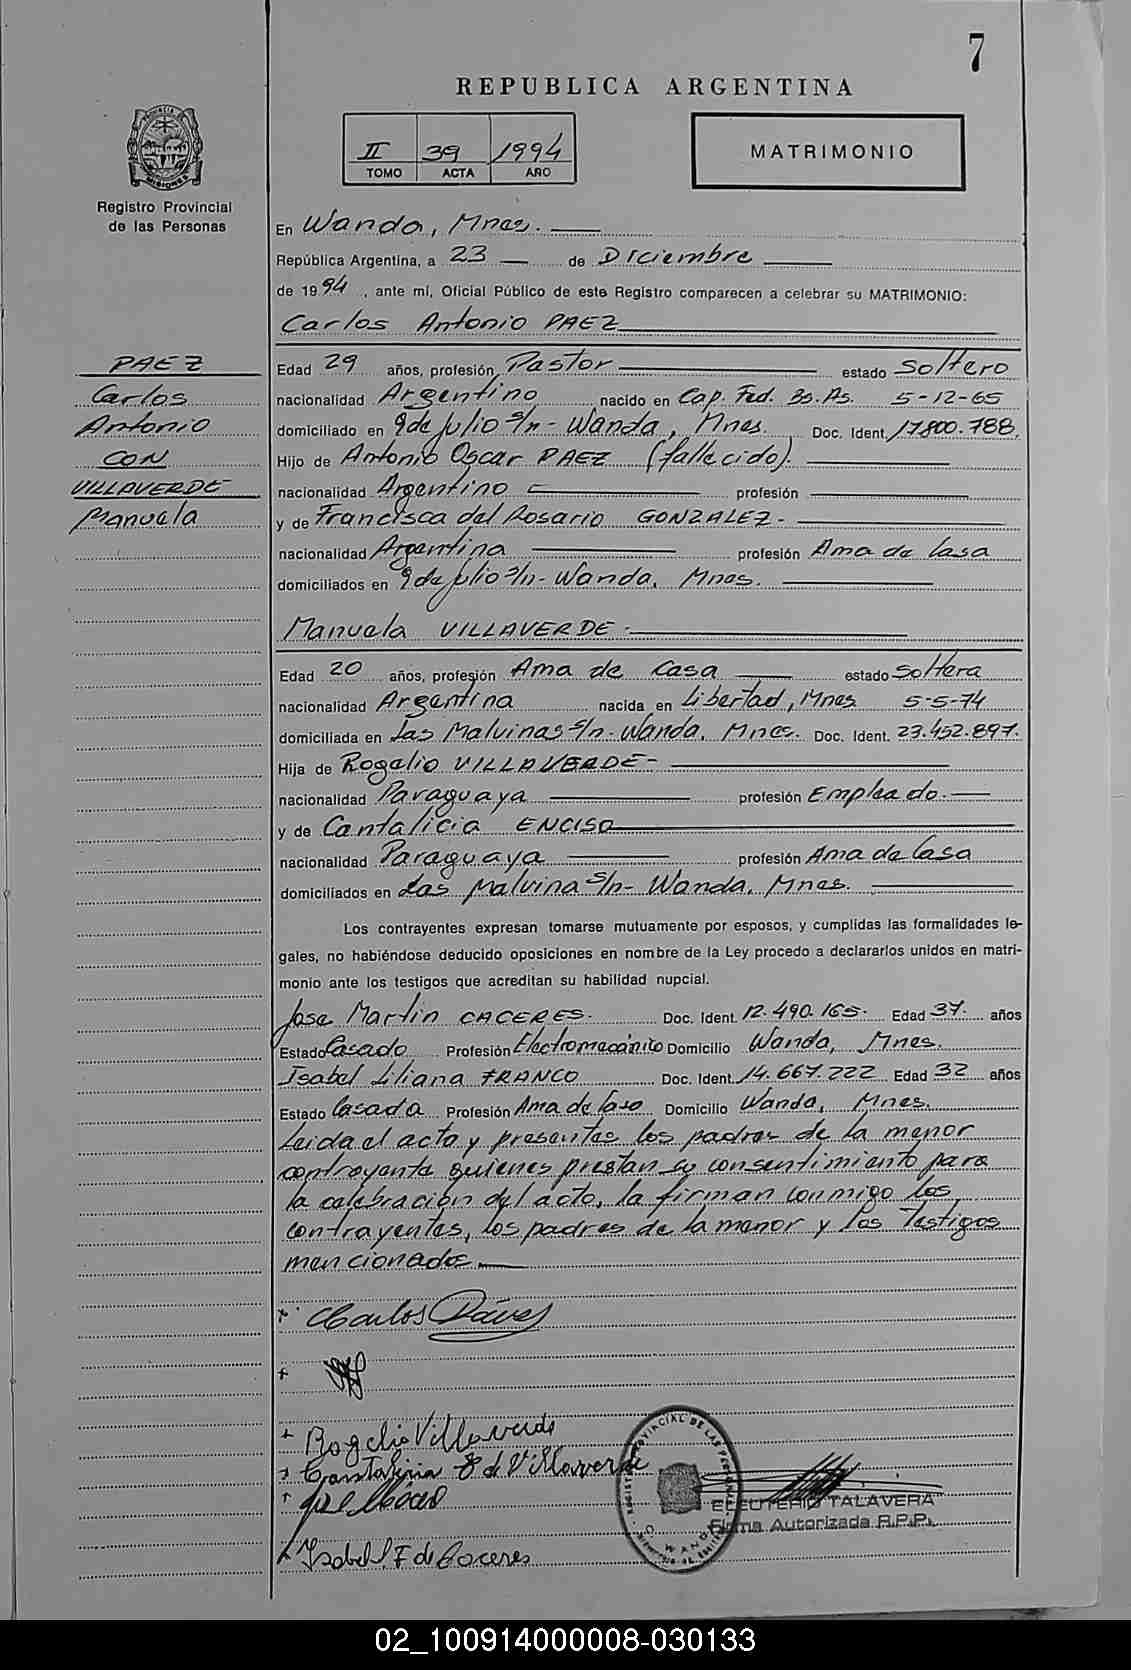 7
REPUBLICA ARGENTINA
II 39 1994
TOMO ACTA AÑO
MATRIMONIO
PROVINCIA DE
MISIONES
Registro Provincial
de las Personas
En Wanda, Mnes.
República Argentina, a 23 de Diciembre
de 1994, ante mí, Oficial Público de este Registro comparecen a celebrar su MATRIMONIO:
Carlos Antonio PAEZ
PAEZ
Carlos
Antonio
CON
VILLAVERDE
Manuela
Edad 29 años, profesión Pastor estado Soltero
nacionalidad Argentino nacido en Cap. Fed. Bs. As. 5-12-65
domiciliado en 9 de julio S/n - Wanda, Mnes. Doc. Ident. 17.800.788.
Hijo de Antonio Oscar PAEZ (fallecido).
nacionalidad Argentino profesión
y de Francisca del Rosario GONZALEZ -
nacionalidad Argentina profesión Ama de Casa
domiciliados en 9 de julio S/n - Wanda, Mnes.
Manuela VILLAVERDE -
Edad 20 años, profesión Ama de Casa estado Soltera
nacionalidad Argentina nacida en Libertad, Mnes 5-5-74
domiciliada en Las Malvinas S/n - Wanda, Mnes. Doc. Ident. 23.452.897.
Hija de Rogelio VILLAVERDE -
nacionalidad Paraguaya profesión Empleado.
y de Cantalicia ENCISO
nacionalidad Paraguaya profesión Ama de Casa
domiciliados en Las Malvina S/n - Wanda, Mnes.
Los contrayentes expresan tomarse mutuamente por esposos, y cumplidas las formalidades le-
gales, no habiéndose deducido oposiciones en nombre de la Ley procedo a declararlos unidos en matri-
monio ante los testigos que acreditan su habilidad nupcial.
Jose Martin CACERES. Doc. Ident. 12.490.165. Edad 37. años
Estado Casado Profesión Electromecánico Domicilio Wanda, Mnes.
Isabel Liliana FRANCO Doc. Ident. 14.667.222 Edad 32 años
Estado Casada Profesión Ama de Casa Domicilio Wanda, Mnes.
Leida el acta y presentes los padres de la menor
contrayente quienes prestan su consentimiento para
la celebración del acto, la firman conmigo los
contrayentes, los padres de la menor y los Testigos
mencionados.
+ Carlos Páez
+
+ Rogelio Villaverde
+ Cantalicia E de Villaverde
+
+ Isabel F de Caceres
ELEUTERIO TALAVERA
Firma Autorizada R.P.P.
02_100914000008-030133